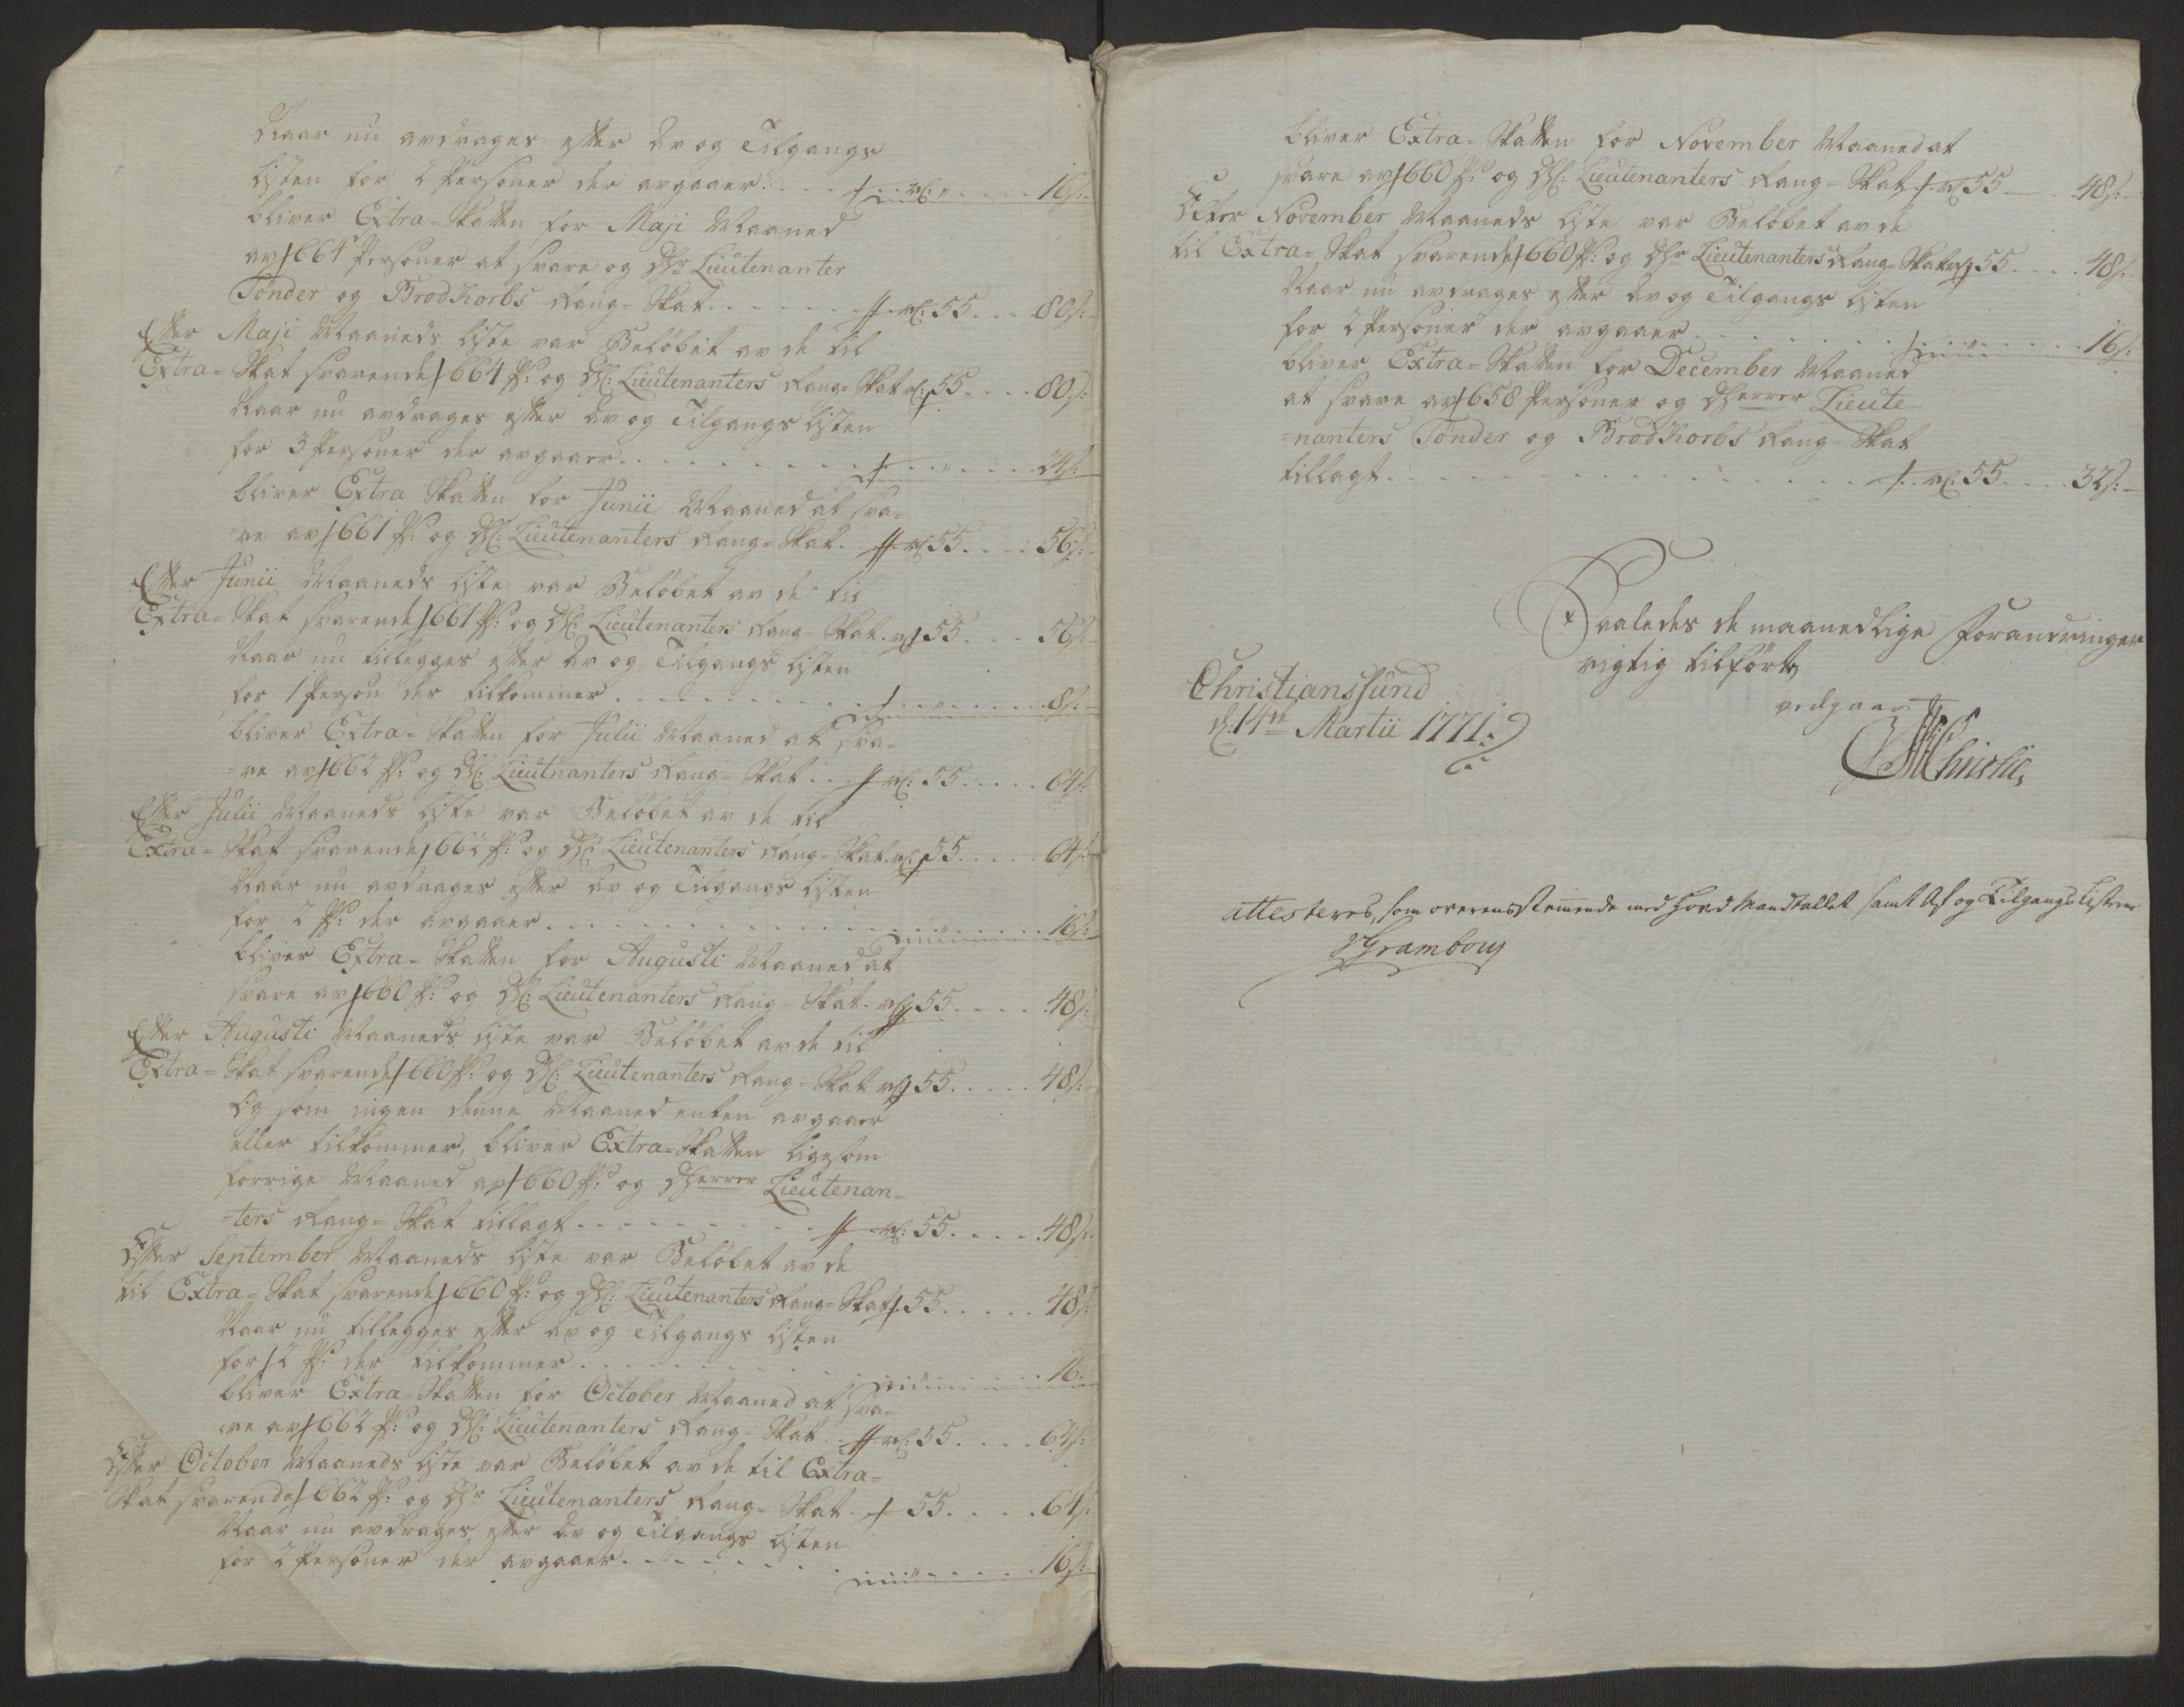 Naar nu avdrages efter Av og Tilgangs
Listen for 2 Personer der avgaaer . . . . rd: " . . . . 16 s:
bliver Extra-Skatten for Maji Maaned
av 664 Personer at svare og Dhr Lieutenanter
Tønder og Brodkorbs Rang-Skat . . . . . . rd: 55 . . . 80 s:
Efter Maji Maaneds Liste var Beløbet av de til
Extra-Skat svarende 664 Ps: og Dhr: Lieutenanters Rang-Skat rd: 55 . . . . 80 s:
Naar nu avdrages efter Av og Tilgangs Listen
for 3 Personer der avgaaer . . . . . . . . " . . . . 24 s:
bliver Extra Skatten for Junii Maaned at sva-
re av 661 Ps: og Dhr: Lieutenanters Rang-Skat . rd 55 . . . . 56 s:
Efter Junii Maaneds Liste var Beløbet av de til
Extra-Skat svarende 661 Ps: og Dhr: Lieutenanters Rang-Skat . rd 55 . . . 56 s:
Naar nu tillegges efter Av og Tilgangs Listen
for 1 Person der tilkommer . . . . . . . . " . . . . . 8 s:
bliver Extra-Skatten for Julii Maaned at sva-
=re av 662 Ps: og Dhr: Lieutnanters Rang-Skat . . . rd: 55 . . . . . 64 s:
Efter Julii Maaneds Liste var Beløbet av de til
Extra-Skat svarende 662 Ps: og Dhr: Lieutenanters Rang-Skat . rd: 55 . . . . . 64 s:
Naar nu avdrages efter Av og Tilgangs Listen
for 2 Ps: der avgaaer . . . . . . . . . . . . . . . 16 s:
bliver Extra-Skatten for Augusti Maaned at
svare av 660 Ps: og Dhr: Lieutenanters Rang-Skat . rd 55 . . . . . 48 s:
Efter Augusti Maaneds Liste var Beløbet av de til
Extra-Skat svarende 660 Ps: og Dhr: Lieutenanters Rang-Skat rd 55 . . . . . 48 s:
Og som ingen denne Maaned enten avgaaer
eller tilkommer, bliver Extra-Skatten ligesom
forrige Maaned av 660 Ps: og Dherrer Lieutenan-
=ters Rang-Skat tillagt . . . . . . . . . rd: 55 . . . . . 48 s:
Efter September Maaneds Liste var Beløbet av de
til Extra-Skat svarende 660 Ps: og Dhr: Lieutenanters Rang-Skat 55 . . . . . 48 s:
Naar nu tillegges efter Av og Tilgangs Listen
for 2 Ps: der tilkommer . . . . . . . . . . . . . . 16.
bliver Extra-Skatten for October Maaned at sva-
re av 662 Ps: og Dhr: Lieutenanters Rang-Skat . . rd: 55 . . . . 64 s:
Efter October Maaneds Liste var Beløbet av de til Extra-
Skat svarende 662 Ps: og Dhr Lieutenanters Rang-Skat . 55 . . . . . 64 s:
Naar nu avdrages efter Av og Tilgangs Listen
for 2 Personer der avgaaer . . . . . . . . . . . . 16 s:
bliver Extra-Skatten for November Maaned at
svare av 660 Ps: og Dhr: Lieutenanters Rang-Skat rd 55 . . . 48 s:
Efter November Maaneds Liste var Beløbet av de
til Extra-Skat svarende 660 Ps: og Dhr Lieutenanters Rang-Skat rd 55 . . . . 48 s:
Naar nu avdrages efter Av og Tilgangs Listen
for 2 Personer der avgaaer . . . . . . . . . . . 16 s:
bliver Extra-Skatten for December Maaned
at svare av 658 Personer og Dherrer Lieute-
=nanters Tønder og Brodkorbs Rang-Skat
tillagt . . . . . . . . . . . . . . . rd: 55 . . . . 32 s:
Saaledes de maanedlige Forandringer
rigtig tilført
vedgaar
Christianssund
d: 14de Martii 1771.
JMChristie
attesteres, som overensstemmende med Hoved Mandtallet samt Af og Tilgangs Listerne